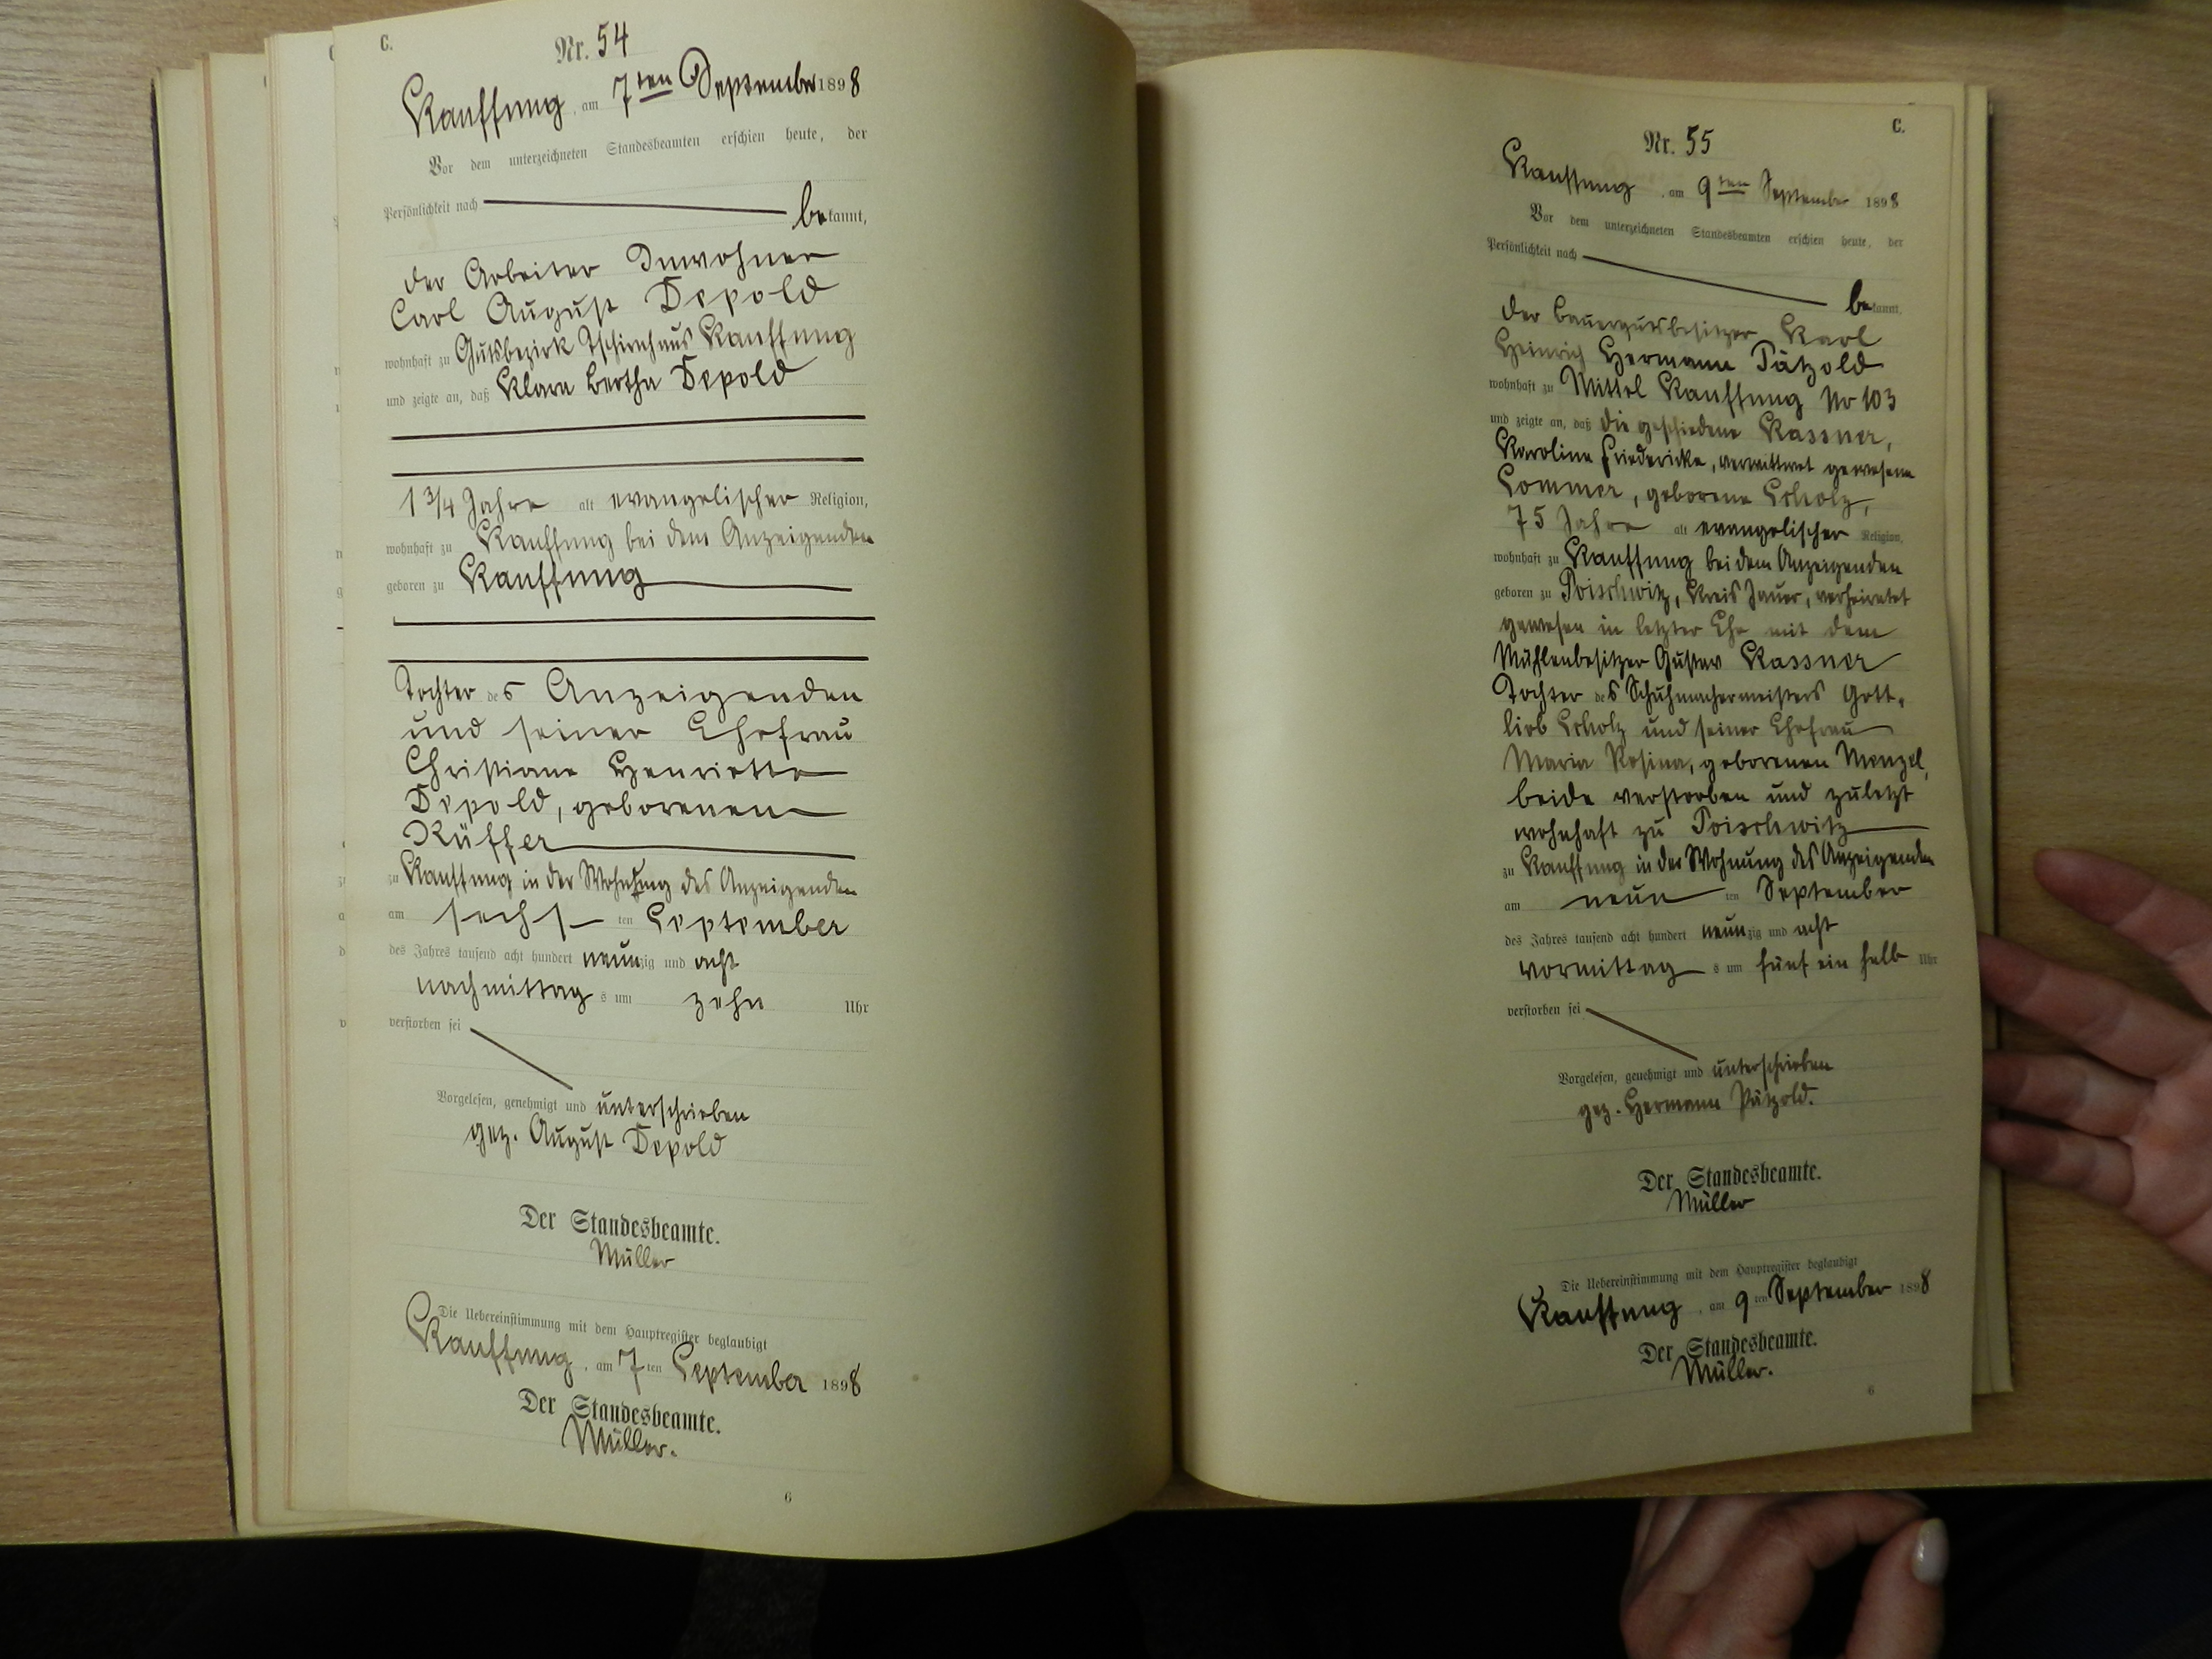 C.
Nr. 54
Kauffung, am 7ten September 1898
Vor dem unterzeichneten Standesbeamten erschien heute, der
Persönlichkeit nach bekannt,
der Arbeiter Inwohner
Carl August Depold
wohnhaft zu Gutsbezirk Tschirnhaus Kauffung
und zeigte an, daß Klara Bertha Depold
1 3/4 Jahre alt evangelischer Religion,
wohnhaft zu Kauffung bei dem Anzeigenden
geboren zu Kauffung
Tochter des Anzeigenden
und seiner Ehefrau
Christiane Henriette
Depold, geborenen
Küffer
zu Kauffung in der Wohnung des Anzeigenden
am sechsten September
des Jahres tausend acht hundert neunzig und acht
nachmittags um zehn Uhr
verstorben sei
Vorgelesen, genehmigt und unterschrieben
gez. August Depold
Der Standesbeamte.
Müller
Die Uebereinstimmung mit dem Hauptregister beglaubigt
Kauffung, am 7ten September 1898
Der Standesbeamte.
Müller.
6
C.
Nr. 55
Kauffung, am 9ten September 1898
Vor dem unterzeichneten Standesbeamten erschien heute, der
Persönlichkeit nach bekannt,
der Bauergutsbesitzer Karl
Heinrich Hermann Pätzold
wohnhaft zu Mittel Kauffung No 103
und zeigte an, daß die geschiedene Kassner,
Karoline Friedericke, verwittwet gewesene
Sommer, geborene Scholz,
75 Jahre alt evangelischer Religion,
wohnhaft zu Kauffung bei dem Anzeigenden
geboren zu Poischwitz, Kreis Jauer, verheiratet
gewesen in letzter Ehe mit dem
Mühlenbesitzer Gustav Kassner
Tochter des Schuhmachermeisters Gott-
lieb Scholz und seiner Ehefrau
Maria Rosina, geborenen Menzel,
beide verstorben und zuletzt
wohnhaft zu Poischwitz
zu Kauffung in der Wohnung des Anzeigenden
am neunten September
des Jahres tausend acht hundert neunzig und acht
vormittags um fünf ein halb Uhr
verstorben sei
Vorgelesen, genehmigt und unterschrieben
gez. Hermann Pätzold.
Der Standesbeamte.
Müller
Die Uebereinstimmung mit dem Hauptregister beglaubigt
Kauffung, am 9ten September 1898
Der Standesbeamte.
Müller.
6